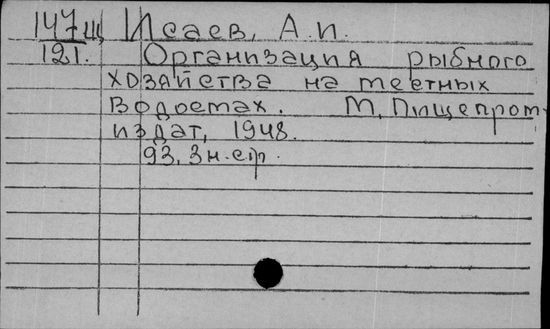 147щ Исаев, А.И.
121. Организация рыбного
хозяйства на местных
водоемах. М, Пищепром-
издат, 1948.
93, 3 н. стр.